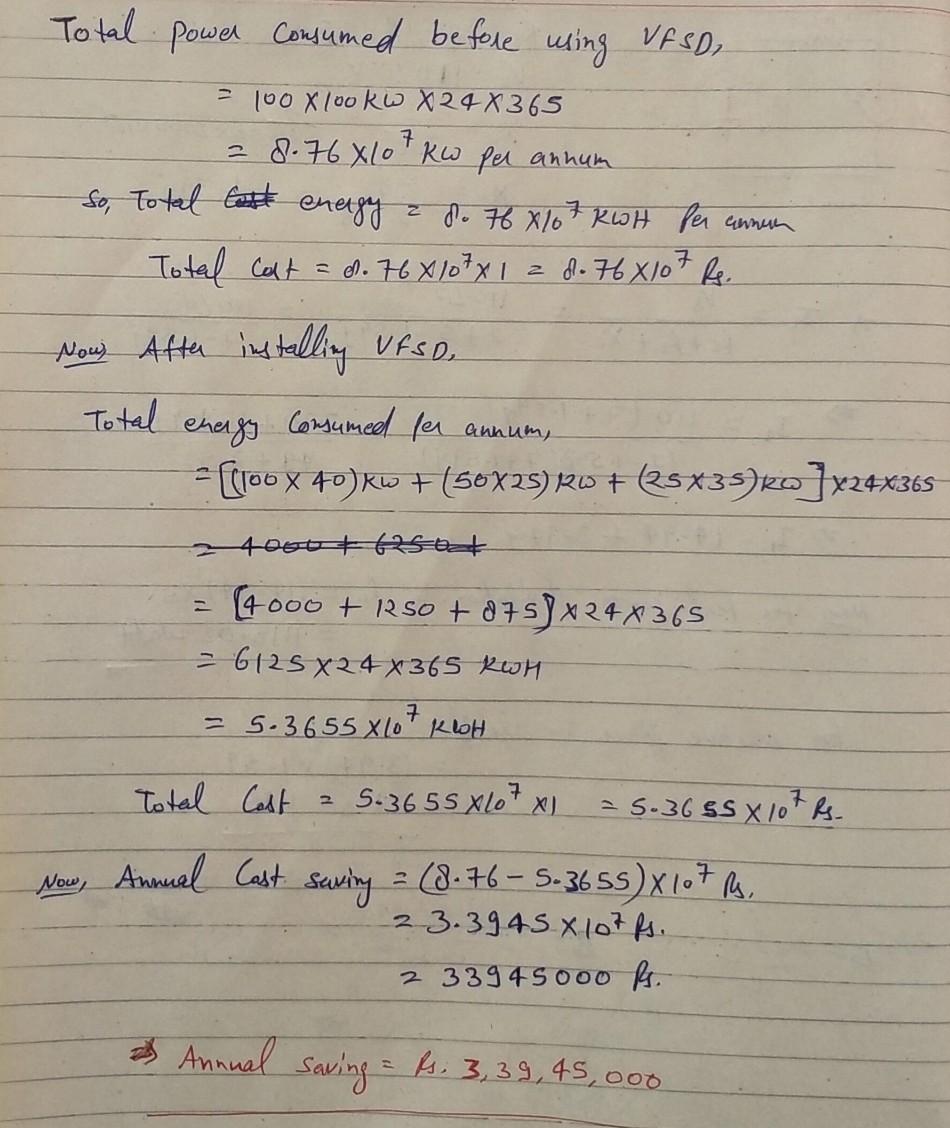 Total power Consumed before using VFSD,
= 100 X 100 KW X 24 X 365
= 8.76 X 10⁷ KW per annum
So, Total Cost energy = 8.76 X 10⁷ KWH Per annum
Total Cost = 8.76 X 10⁷ X 1 = 8.76 X 10⁷ Rs.
Now After installing VFSD,
Total energy Consumed per annum,
= [(100 X 40) KW + (50 X 25) KW + (25 X 35) KW] X 24 X 365
= 4000 + 6250 +
= [4000 + 1250 + 875] X 24 X 365
= 6125 X 24 X 365 KWH
= 5.3655 X 10⁷ KWH
Total Cost = 5.3655 X 10⁷ X 1 = 5.3655 X 10⁷ Rs.
Now, Annual Cost saving = (8.76 - 5.3655) X 10⁷ Rs.
= 3.3945 X 10⁷ Rs.
= 33945000 Rs.
⇒ Annual saving = Rs. 3,39,45,000